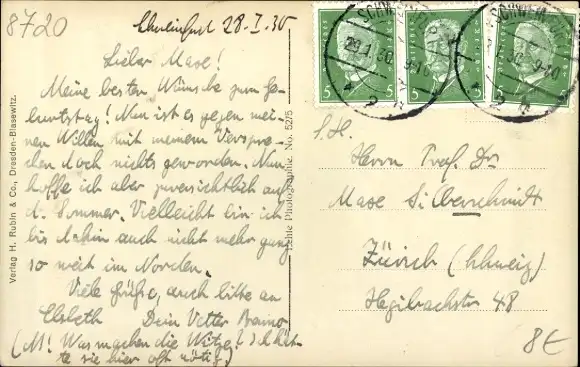 8720
Schweinfurt 28-I.30
Lieber Maxe!
Meine besten Wünsche zum Ge-
burtstag! Nun ist es gegen mei-
nen Willen mit meinem Verspre-
chen doch nichts geworden. Nun
hoffe ich aber zuversichtlich auf
d. Sommer. Vielleicht bin ich
bis dahin auch nicht mehr ganz
so weit im Norden.
Viele Grüße, auch bitte an
Elsbeth Dein Vetter Benno
(M! Was machen die Witze? Ich hät-
te sie hier oft nötig.)
Verlag H. Rubin & Co., Dresden-Blasewitz.
Echte Photographie. No. 5275
5 5 5 5
SCHWEINFURT
29.1.30. 9-10
S. H.
Herrn Prof. Dr
Maxe Silberschmidt
Zürich (Schweiz)
Hegibachstr 48
8€